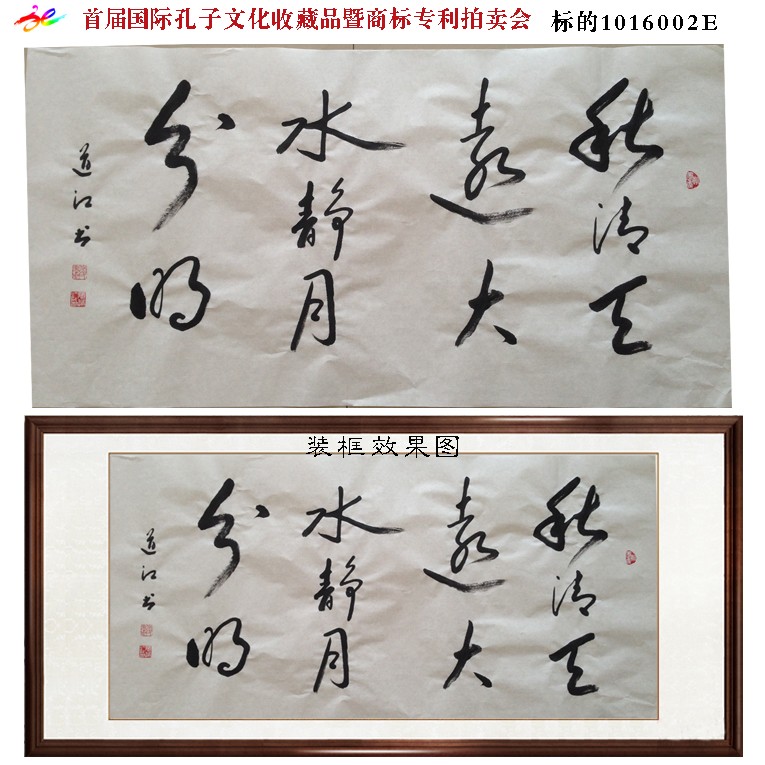 首届国际孔子文化收藏品暨商标专利拍卖会 标的1016002E
秋清天
遠大
水静月
分明
道江书
装框效果图
秋清天
遠大
水静月
分明
道江书